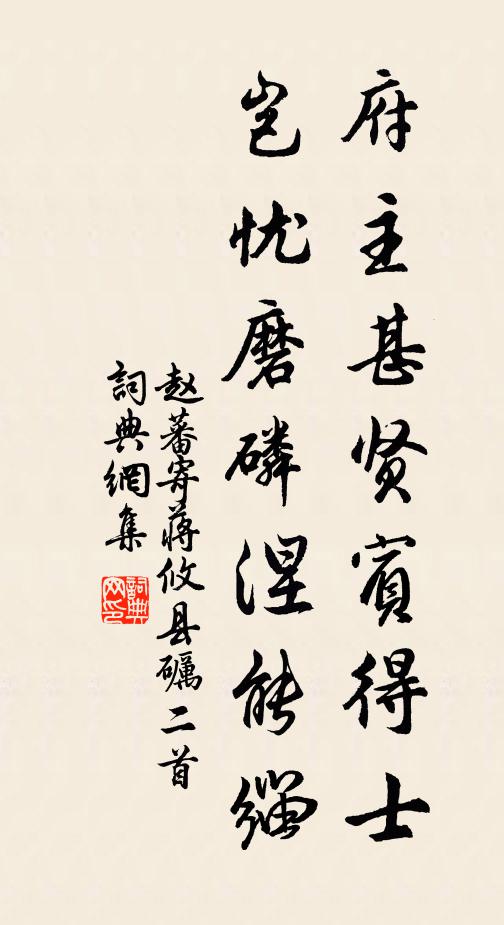 府主甚贤賓得士
岂忧磨磷涅能緇
赵蕃寄蒋攸县礪二首
詞典網集
詞典網印